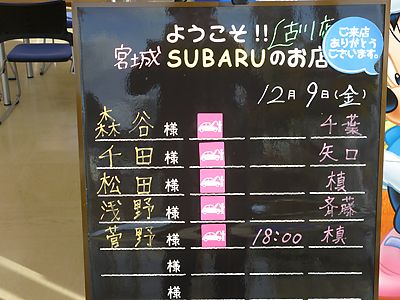 ようこそ!!
古川店
宮城 SUBARUのお店
ご来店
ありがとう
ございます。
12月9日(金)
森谷 様 千葉
千田 様 矢口
松田 様 槙
浅野 様 斉藤
菅野 様 18:00 槙
様
様